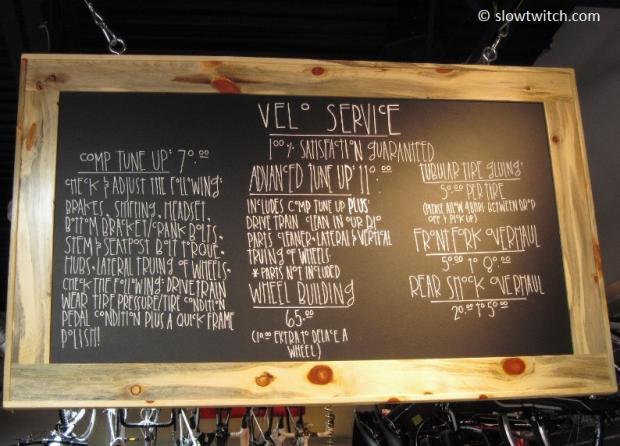 © slowtwitch.com
VELO SERVICE
100% SATISFACTION GUARANTEED
COMP TUNE UP: 70.00
CHECK & ADJUST THE FOLLOWING:
BRAKES, SHIFTING, HEADSET,
BOTTOM BRACKET/CRANK BOLTS,
STEM & SEATPOST BOLT TORQUE,
HUBS, LATERAL TRUING OF WHEELS.
CHECK THE FOLLOWING: DRIVETRAIN
WEAR TIRE PRESSURE/TIRE CONDITION
PEDAL CONDITION PLUS A QUICK FRAME
POLISH!
ADVANCED TUNE UP: 110.00
INCLUDES COMP TUNE UP PLUS:
DRIVE TRAIN CLEAN IN OUR BIO
PARTS CLEANER, LATERAL & VERTICAL
TRUING OF WHEELS
* PARTS NOT INCLUDED
WHEEL BUILDING
65.00
(10.00 EXTRA TO DELACE A
WHEEL)
TUBULAR TIRE GLUING:
50.00 PER TIRE
(PLEASE ALLOW DAYS BETWEEN DROP
OFF & PICK UP)
FRONT FORK OVERHAUL
50.00 TO
REAR SHOCK OVERHAUL
20.00 TO 50.00